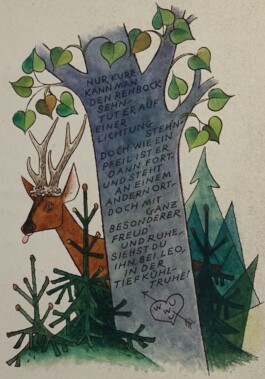 NUR KURZ
KANN MAN
DEN REHBOCK
SEHN-
TUT ER AUF
EINER
LICHTUNG
STEHN-
DOCH WIE EIN
PFEIL IST ER
DANN FORT-
UND STEHT
AN EINEM
ANDERN ORT-
DOCH MIT
GANZ
BESONDERER
FREUD'
UND RUHE,
SIEHST DU
IHN BEI LEO,
IN DER
TIEFKÜHL-
TRUHE!